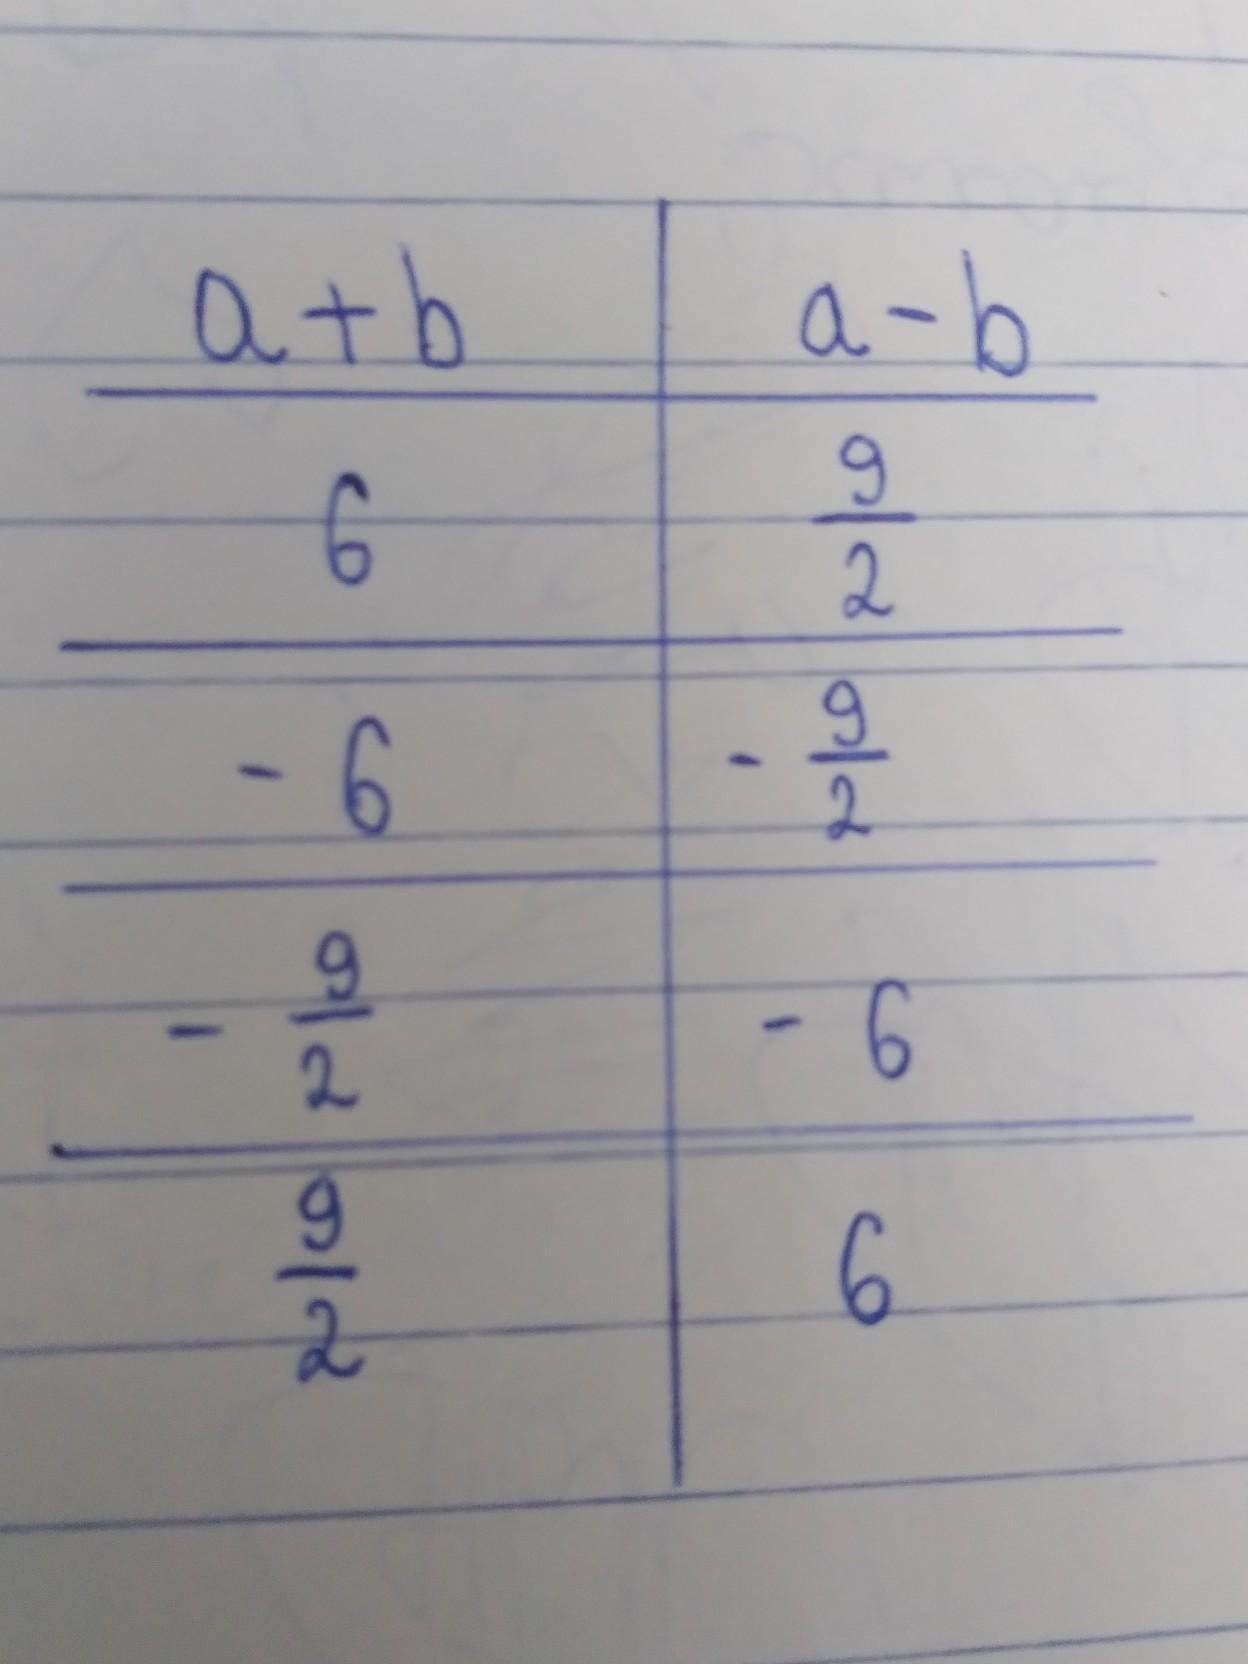 a + b | a - b
6 | 9/2
- 6 | - 9/2
- 9/2 | - 6
9/2 | 6